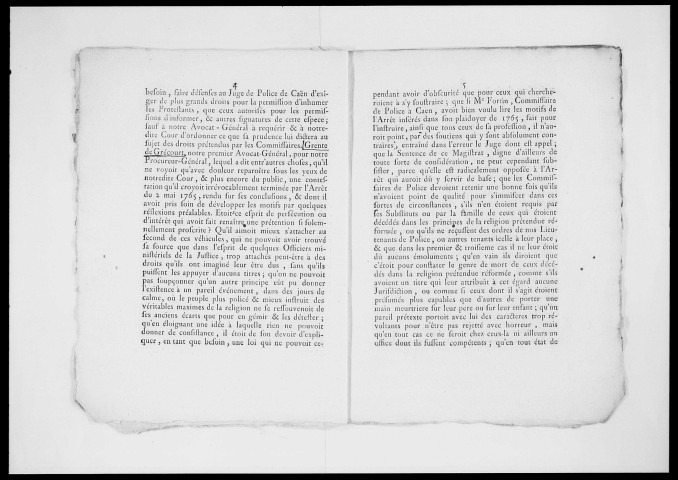 4
besoin, faire défenses au Juge de Police de Caën d'exi-
ger de plus grands droits pour la permission d'inhumer
les Protestants, que ceux autorisés pour les permis-
sions d'informer, & autres signatures de cette espece;
sauf à notre Avocat-Général à requérir & à notre-
dite Cour d'ordonner ce que sa prudence lui dictera au
sujet des droits prétendus par les Commissaires. Grente
de Grécourt, notre premier Avocat-Général, pour notre
Procureur-Général, lequel a dit entr'autres choses, qu'il
ne voyoit qu'avec douleur reparoître sous les yeux de
notredite Cour, & plus encore du public, une contes-
tation qu'il croyoit irrévocablement terminée par l'Arrêt
du 2 mai 1765, rendu sur ses conclusions, & dont il
avoit pris soin de développer les motifs par quelques
réflexions préalables. Etoit-ce esprit de persécution ou
d'intérêt qui avoit fait renaître une prétention si solem-
nellement proscrite? Qu'il aimoit mieux s'attacher au
second de ces véhicules, qui ne pouvoit avoir trouvé
sa source que dans l'esprit de quelques Officiers mi-
nistériels de la Justice, trop attachés peut-être à des
droits qu'ils ont imaginé leur être dus, sans qu'ils
puissent les appuyer d'aucuns titres; qu'on ne pouvoit
pas soupçonner qu'un autre principe eût pu donner
l'existence à un pareil événement, dans des jours de
calme, où le peuple plus policé & mieux instruit des
véritables maximes de la religion ne se ressouvenoit de
ses anciens écarts que pour en gémir & les détester;
qu'en éloignant une idée à laquelle rien ne pouvoit
donner de consistance, il étoit de son devoir d'expli-
quer, en tant que besoin, une loi qui ne pouvoit ce-
5
pendant avoir d'obscurité que pour ceux qui cherche-
roient à s'y soustraire; que si Me Fortin, Commissaire
de Police à Caen, avoit bien voulu lire les motifs de
l'Arrêt insérés dans son plaidoyer de 1765, fait pour
l'instruire, ainsi que tous ceux de sa profession, il n'au-
roit point, par des soutiens qui y sont absolument con-
traires, entraîné dans l'erreur le Juge dont est appel;
que la Sentence de ce Magistrat, digne d'ailleurs de
toute sorte de considération, ne peut cependant sub-
sister, parce qu'elle est radicalement opposée à l'Ar-
rêt qui auroit dû y servir de base; que les Commis-
saires de Police devoient retenir une bonne fois qu'ils
n'avoient point de qualité pour s'immiscer dans ces
sortes de circonstances, s'ils n'en étoient requis par
ses Substituts ou par la famille de ceux qui étoient
décédés dans les principes de la religion prétendue ré-
formée, ou qu'ils ne reçussent des ordres de nos Lieu-
tenants de Police, ou autres tenants icelle à leur place,
& que dans les premier & troisieme cas il ne leur étoit
dû aucuns émoluments; qu'en vain ils diroient que
c'étoit pour constater le genre de mort de ceux décé-
dés dans la religion prétendue réformée, comme s'ils
avoient un titre qui leur attribuât à cet égard aucune
Jurisdiction, ou comme si ceux dont il s'agit étoient
présumés plus capables que d'autres de porter une
main meurtriere sur leur pere ou sur leur enfant; qu'un
pareil prétexte portoit avec lui des caracteres trop ré-
voltants pour n'être pas rejetté avec horreur, mais
qu'en tout cas ce ne seroit chez ceux-là ni ailleurs un
office dont ils fussent compétents; qu'en tout état de